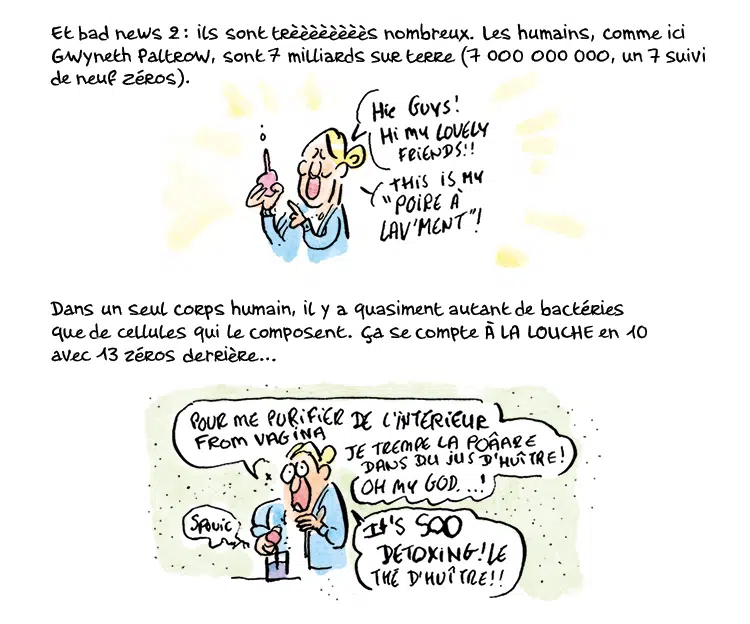 Et bad news 2 : ils sont trèèèèèèèès nombreux. Les humains, comme ici
Gwyneth Paltrow, sont 7 milliards sur terre (7 000 000 000, un 7 suivi
de neuf zéros).
Hie GUYS!
Hi MY LOVELY
FRiENDS!!
THiS iS MY
"POiRE À
LAV'MENT"!
Dans un seul corps humain, il y a quasiment autant de bactéries
que de cellules qui le composent. Ça se compte À LA LOUCHE en 10
avec 13 zéros derrière...
POUR ME PURiFiER DE L'iNTÉRiEUR
FROM VAGiNA
JE TREMPE LA POÂÂRE
DANS DU JUS D'HUÎTRE!
OH MY GOD...!
SPOUiC
It'S SOO
DETOXiNG! LE
THÉ D'HUÎTRE!!